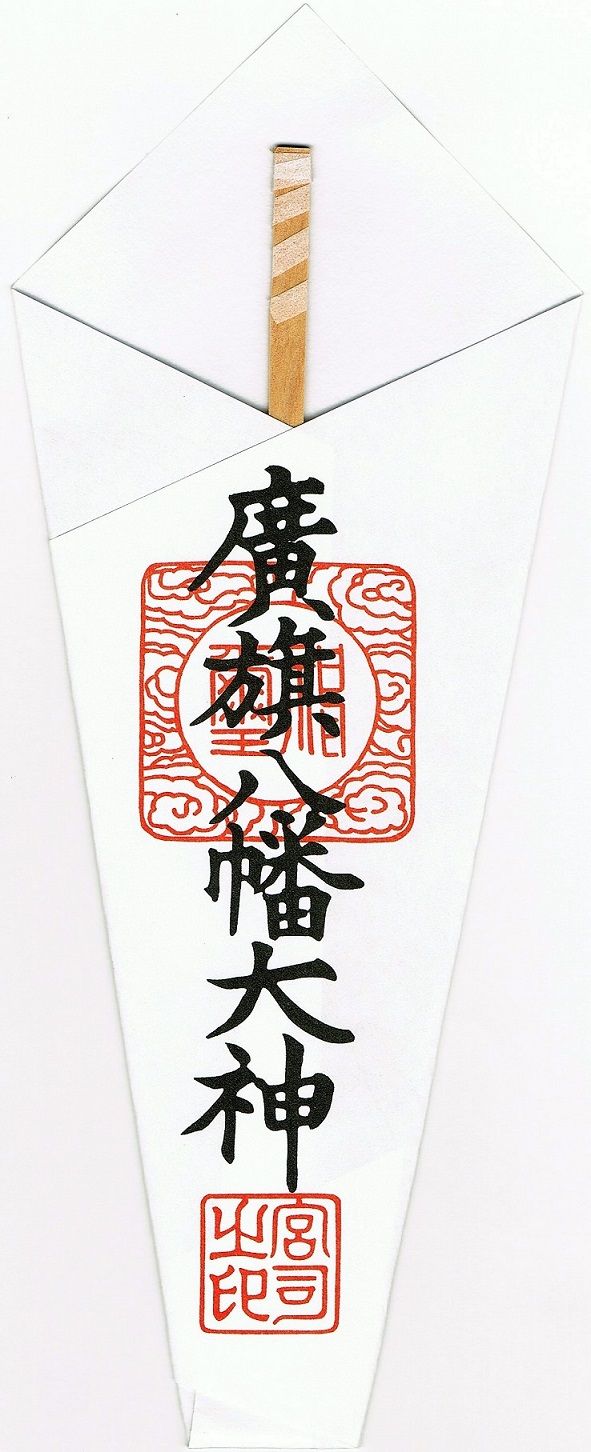 廣旗八幡大神
神璽
宮司
之印